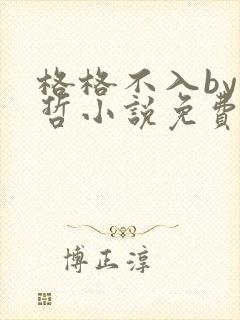 格格不入by
哲小說免費
博正淳